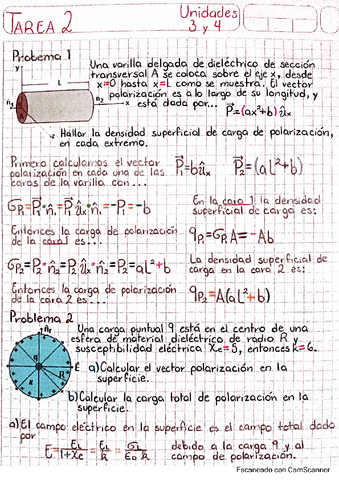 TAREA 2
Unidades
3 y 4
Probema 1
Una varilla delgada de dieléctrico de sección
transversal A se coloca sobre el eje x, desde
x=0 hasta x=L como se muestra. El vector
polarización es a lo largo de su longitud, y
está dado por...
P⃗=(ax²+b)û𝗑
y
L
n₁
n₂
x
Hallar la densidad superficial de carga de polarización,
en cada extremo.
Primero calculamos el vector
polarización en cada una de las
caras de la varilla con...
P⃗₁=bû𝗑 P⃗₂=(aL²+b)
σP₁=P⃗₁·n̂₁=P⃗₁û𝗑·n̂₁=-P₁=-b
En la cara 1 la densidad
superficial de carga es:
Entonces la carga de polarización
de la cara 1 es...
qP₁=σP₁A=-Ab
σP₂=P⃗₂·n̂₂=P⃗₂û𝗑·n̂₂=P₂=aL²+b
La densidad superficial de
carga en la cara 2 es:
Entonces la carga de polarización
de la cara 2 es...
qP₂=A(aL²+b)
Problema 2
Una carga puntual q está en el centro de una
esfera de material dieléctrico de radio R y
susceptibilidad eléctrica χe=5, entonces k=6.
R
E
a)Calcular el vector polarización en la
superficie.
b)Calcular la carga total de polarización en la
superficie.
a)El campo electrico en la superficie es el campo total dado
por
E=EL/1+χe=EL/k=σL/ε₀k
debido a la carga q y al
campo de polarización.
Escaneado con CamScanner